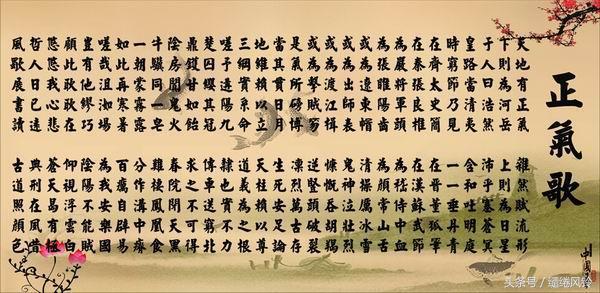 正氣歌
天地有正氣 雜然賦流形
下則為河岳 上則為日星
于人曰浩然 沛乎塞蒼冥
皇路當清夷 含和吐明庭
時窮節乃見 一一垂丹青
在齊太史簡 在晉董狐筆
在秦張良椎 在漢蘇武節
為嚴將軍頭 為嵇侍中血
為張睢陽齒 為顏常山舌
或為遼東帽 清操厲冰雪
或為出師表 鬼神泣壯烈
或為渡江楫 慷慨吞胡羯
或為擊賊笏 逆豎頭破裂
是氣所磅礴 凜烈萬古存
當其貫日月 生死安足論
地維賴以立 天柱賴以尊
三綱實系命 道義為之根
嗟予遘陽九 隸也實不力
楚囚纓其冠 傳車送窮北
鼎鑊甘如飴 求之不可得
陰房闐鬼火 春院閟天黑
牛驥同一皂 雞棲鳳凰食
一朝蒙霧露 分作溝中瘠
如此再寒暑 百癘自辟易
嗟哉沮洳場 為我安樂國
豈有他繆巧 陰陽不能賊
顧此耿耿在 仰視浮雲白
悠悠我心悲 蒼天曷有極
哲人日已遠 典刑在夙昔
風檐展書讀 古道照顏色
头条号/缱绻风铃